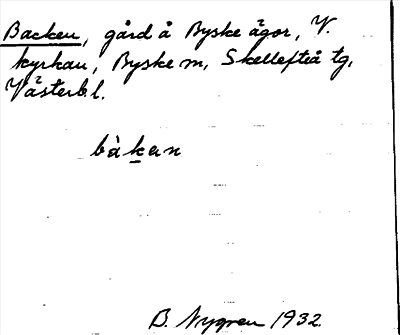 Backen, gård å Byske ägor, V.
kyrkan, Byske sn, Skellefteå tg,
Västerb. l.
bàkan
B. Nygren 1932.